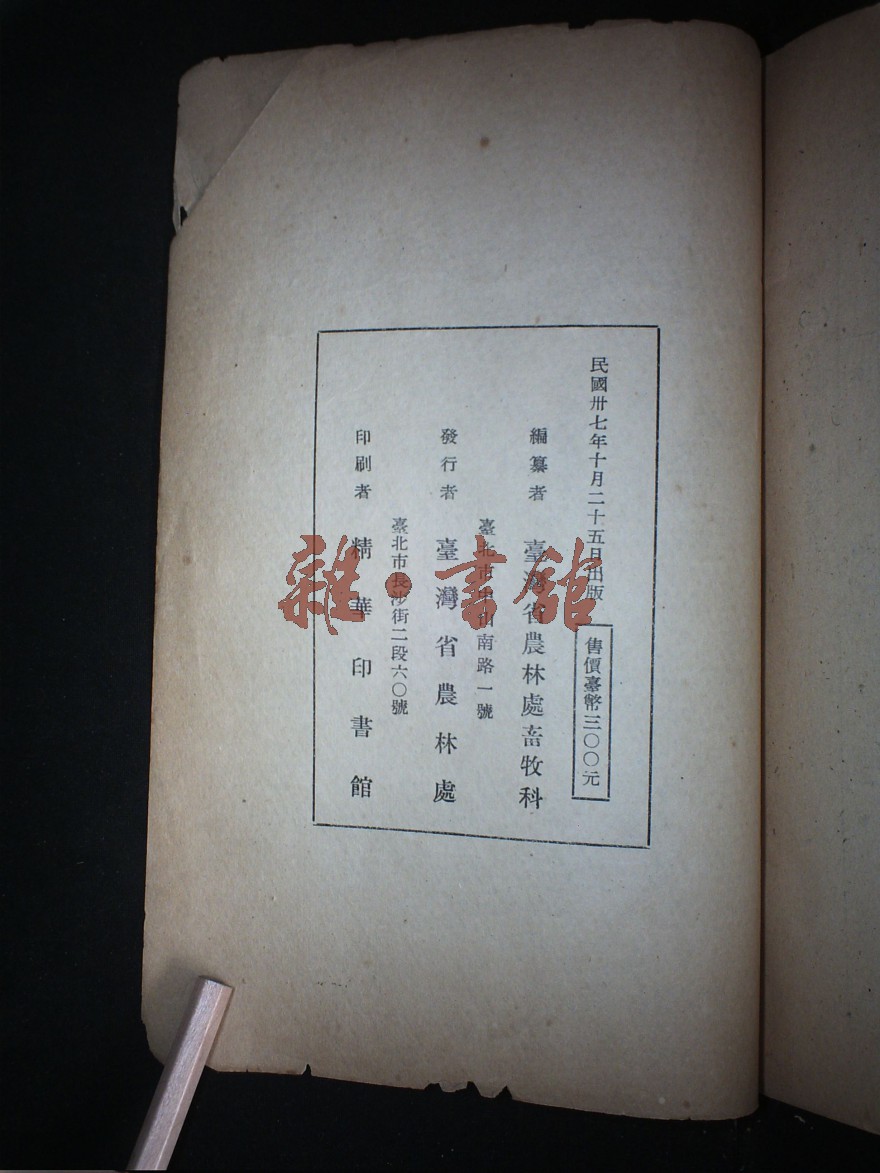 民國卅七年十月二十五日出版
售價臺幣三〇〇元
編纂者 臺灣省農林處畜牧科
臺北市中山南路一號
發行者 臺灣省農林處
臺北市長沙街二段六〇號
印刷者 精華印書館
雜·書館